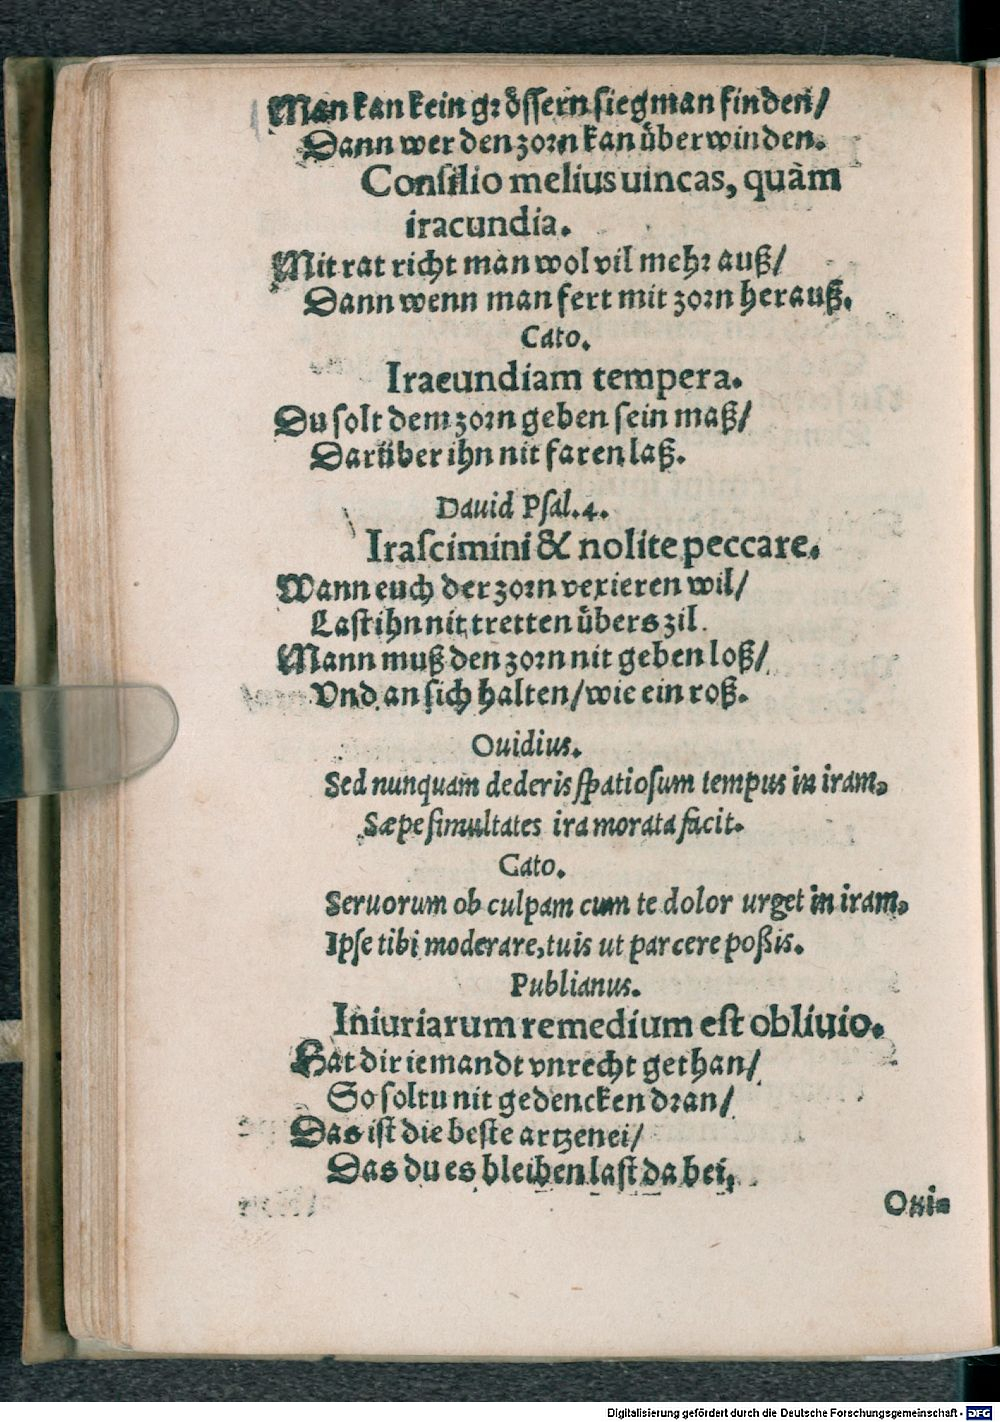 Man kan kein grössern sieg man finden/
Dann wer den zorn kan überwinden.
Consilio melius uincas, quàm
iracundia.
Mit rat richt man wol vil mehr auß/
Dann wenn man fert mit zorn herauß.
Cato.
Iracundiam tempera.
Du solt dem zorn geben sein maß/
Darüber ihn nit faren laß.
Dauid Psal. 4.
Irascimini & nolite peccare.
Wann euch der zorn vexieren wil/
Last ihn nit tretten übers zil.
Mann muß den zorn nit geben loß/
Vnd an sich halten/ wie ein roß.
Ouidius.
Sed nunquam dederis spatiosum tempus in iram,
Sæpe simultates ira morata facit.
Cato.
Seruorum ob culpam cum te dolor urget in iram,
Ipse tibi moderare, tuis ut parcere poßis.
Publianus.
Iniuriarum remedium est obliuio.
Hat dir iemandt vnrecht gethan/
So soltu nit gedencken dran/
Das ist die beste artzenei/
Das du es bleiben last da bei.
Oui-
Digitalisierung gefördert durch die Deutsche Forschungsgemeinschaft - DFG